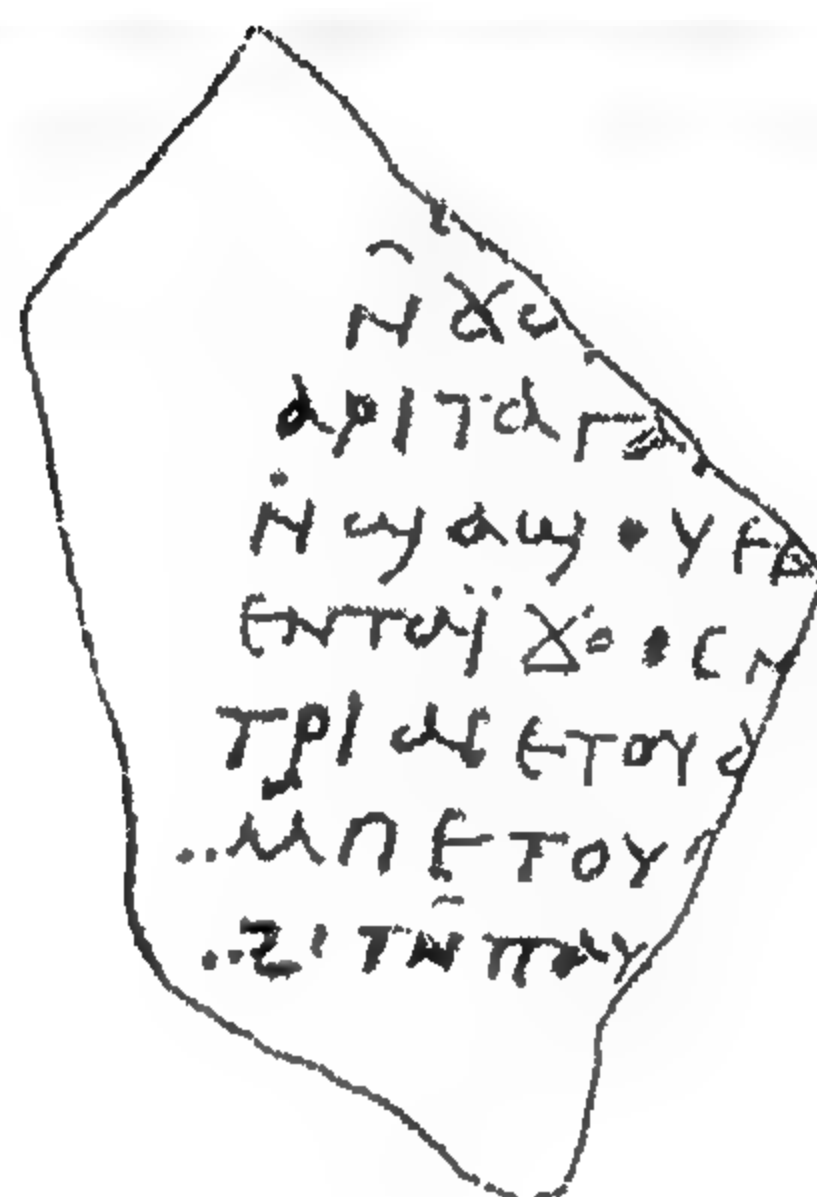 ⲛ̂ϫⲟ
ⲁⲣⲓⲧⲁⲅⲁ
ⲛ̇ϣⲁϣⲟⲩⲉ
ⲉⲛⲧⲁⲓ̈ϫⲟⲟⲥⲛ
ⲧⲣⲓⲁⲥⲉⲧⲟⲩⲁ
..ⲙⲡⲉⲧⲟⲩ
..ϩⲓⲧⲛ̄ⲡⲁⲩ